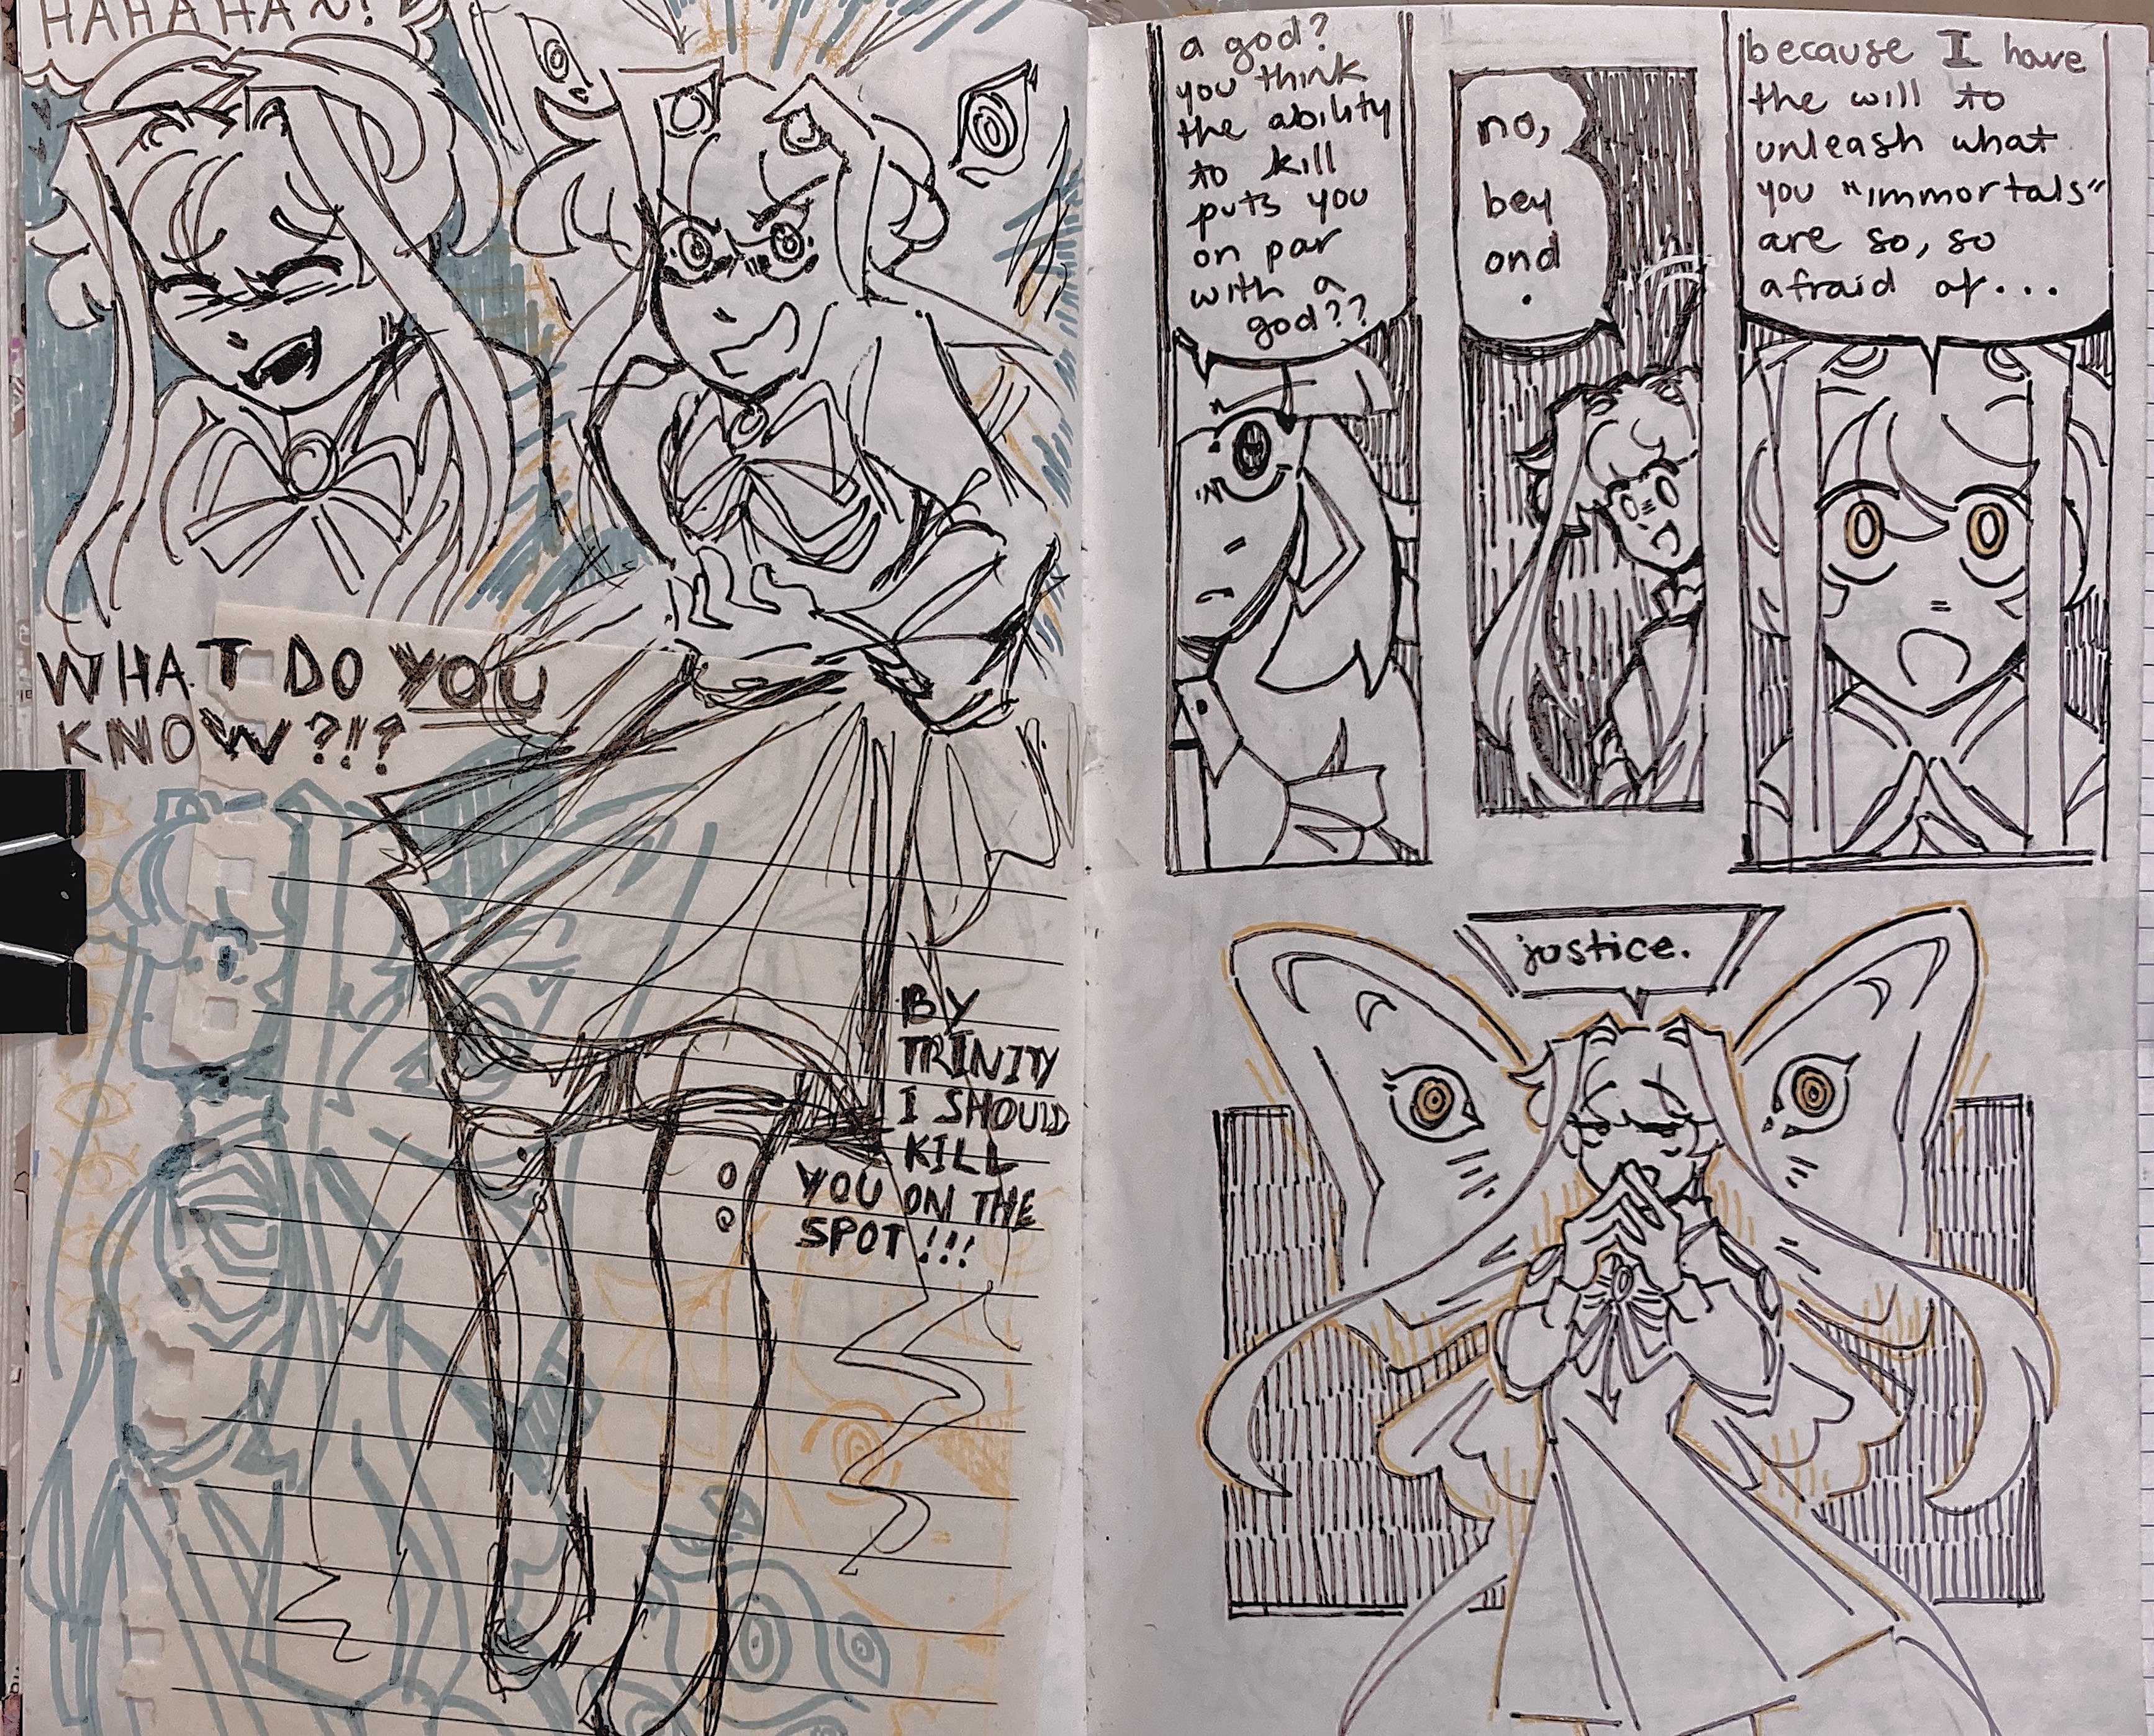 HAHAHA~!
WHAT DO YOU
KNOW?!!?
BY
TRINITY
I SHOULD
KILL
YOU ON THE
SPOT!!!
a god?
you think
the ability
to kill
puts you
on par
with a
god??
no,
bey
ond
.
because I have
the will to
unleash what
you "immortals"
are so, so
afraid of...
justice.